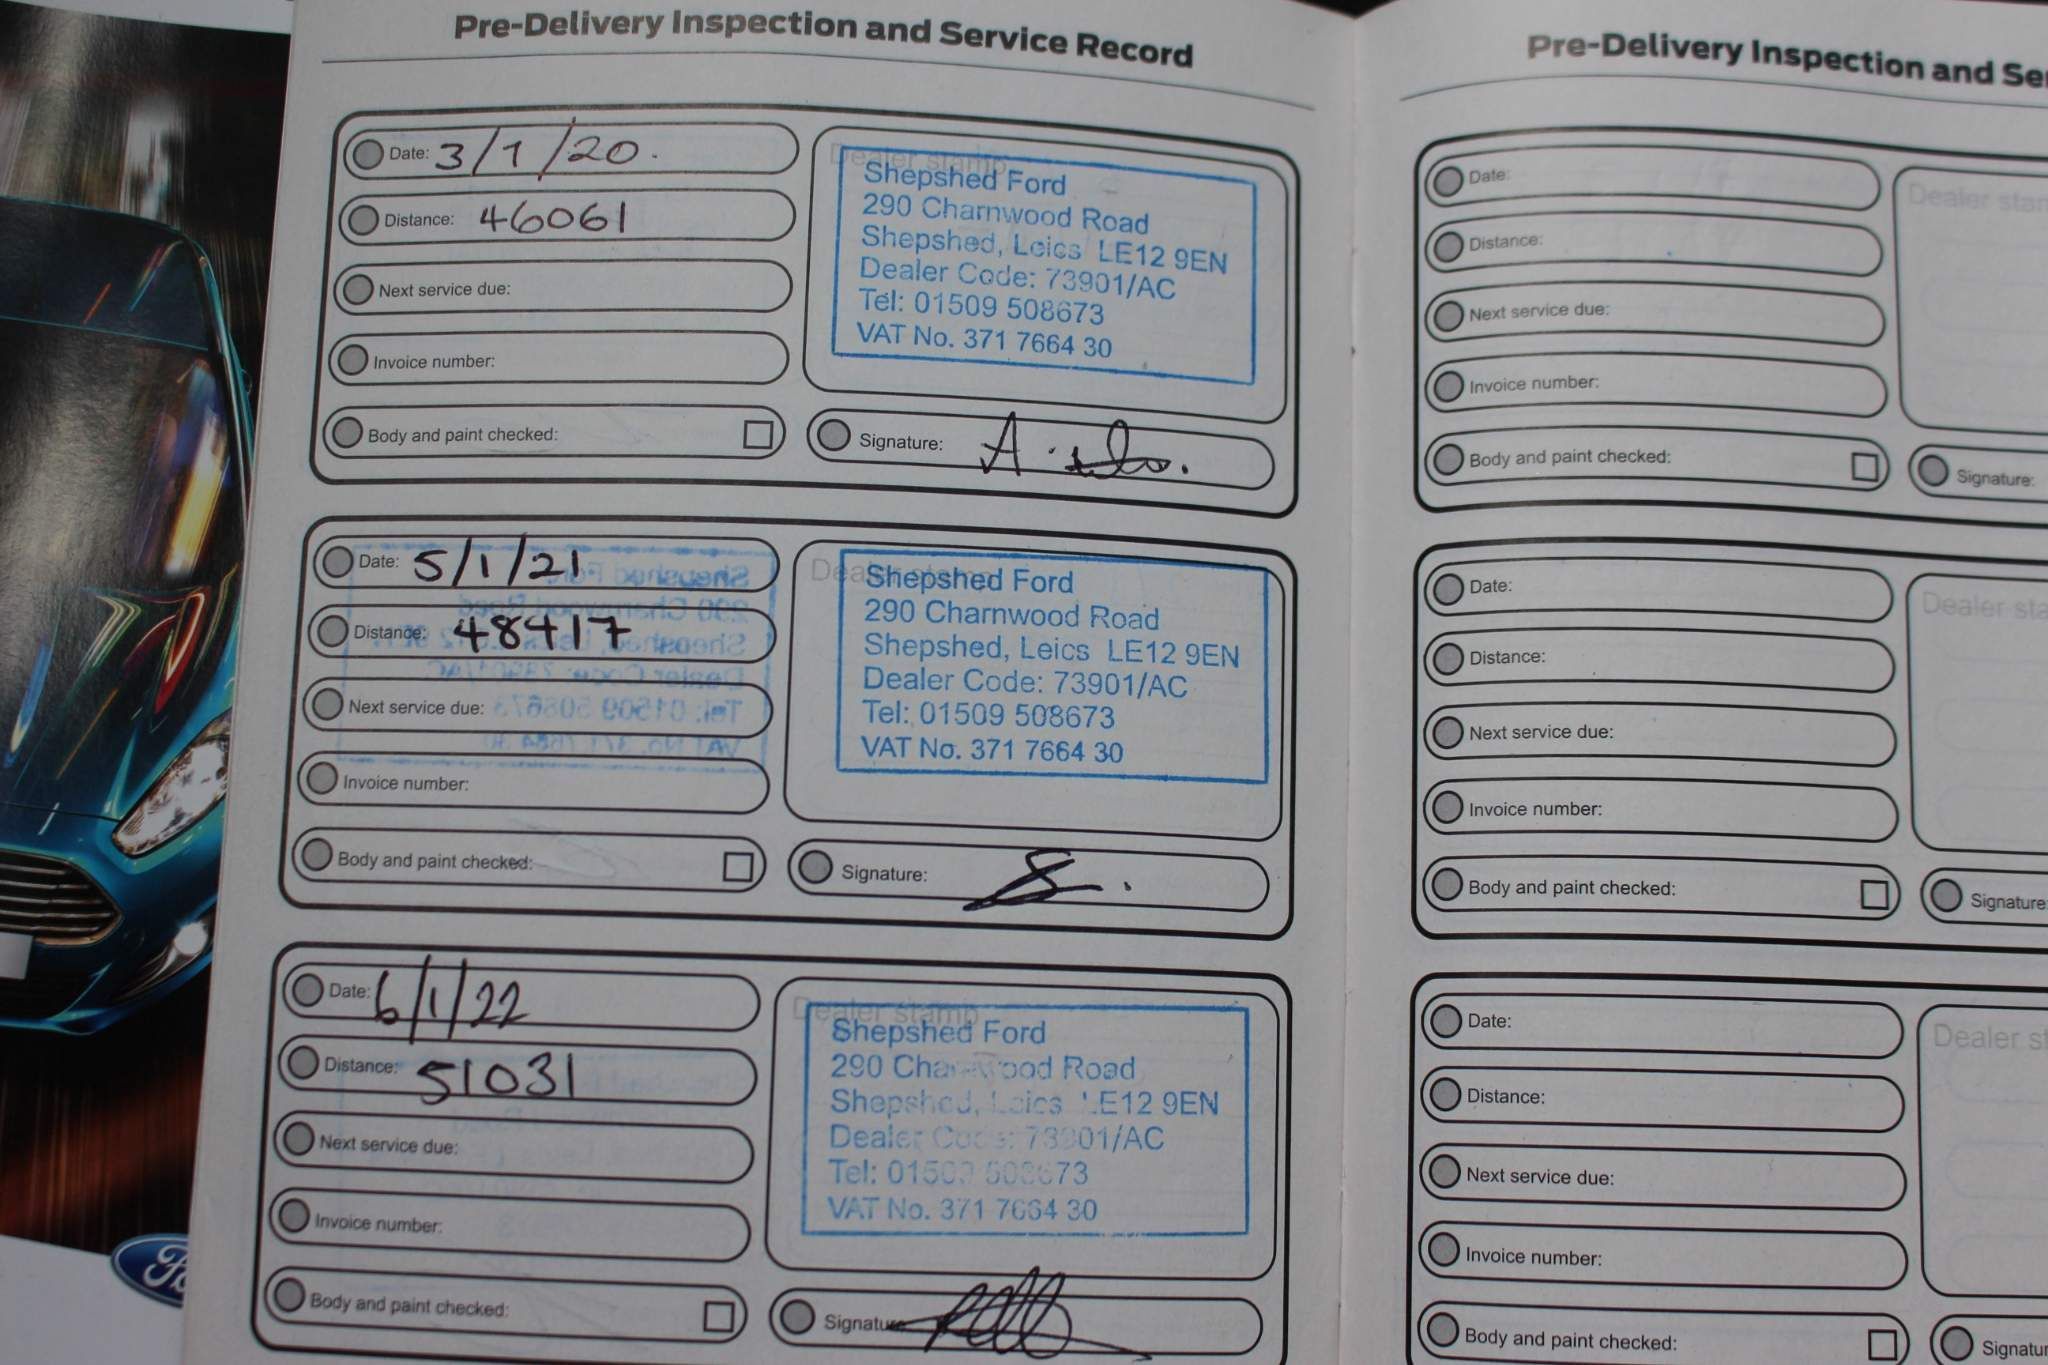 Pre-Delivery Inspection and Service Record
Date: 3/1/20.
Distance: 46061
Next service due:
Invoice number:
Body and paint checked:
Dealer stamp
Shepshed Ford
290 Charnwood Road
Shepshed, Leics LE12 9EN
Dealer Code: 73901/AC
Tel: 01509 508673
VAT No. 371 7664 30
Signature:
Date: 5/1/21
Distance: 48417
Next service due:
Invoice number:
Body and paint checked:
Dealer stamp
Shepshed Ford
290 Charnwood Road
Shepshed, Leics LE12 9EN
Dealer Code: 73901/AC
Tel: 01509 508673
VAT No. 371 7664 30
Signature:
Date: 6/1/22
Distance: 51031
Next service due:
Invoice number:
Body and paint checked:
Dealer stamp
Shepshed Ford
290 Charnwood Road
Shepshed, Leics LE12 9EN
Dealer Code: 73901/AC
Tel: 01509 508673
VAT No. 371 7664 30
Signature:
Pre-Delivery Inspection and Se
Date:
Distance:
Next service due:
Invoice number:
Body and paint checked:
Dealer stam
Signature:
Date:
Distance:
Next service due:
Invoice number:
Body and paint checked:
Dealer sta
Signature:
Date:
Distance:
Next service due:
Invoice number:
Body and paint checked:
Dealer st
Signatur